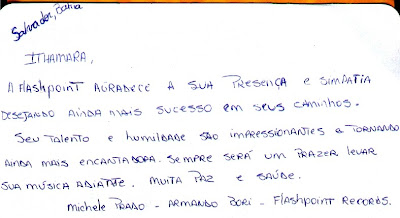 Salvador, Bahia
ITHAMARA,
A FLASHPOINT AGRADECE A SUA PRESENÇA E SIMPATIA
DESEJANDO AINDA MAIS SUCESSO EM SEUS CAMINHOS.
SEU TALENTO E HUMILDADE SÃO IMPRESSIONANTES A TORNANDO
AINDA MAIS ENCANTADORA. SEMPRE SERÁ UM PRAZER LEVAR
SUA MÚSICA ADIANTE. MUITA PAZ E SAÚDE.
Michele PRADO - ARMANDO BORI - FLASHPOINT RECORDS.